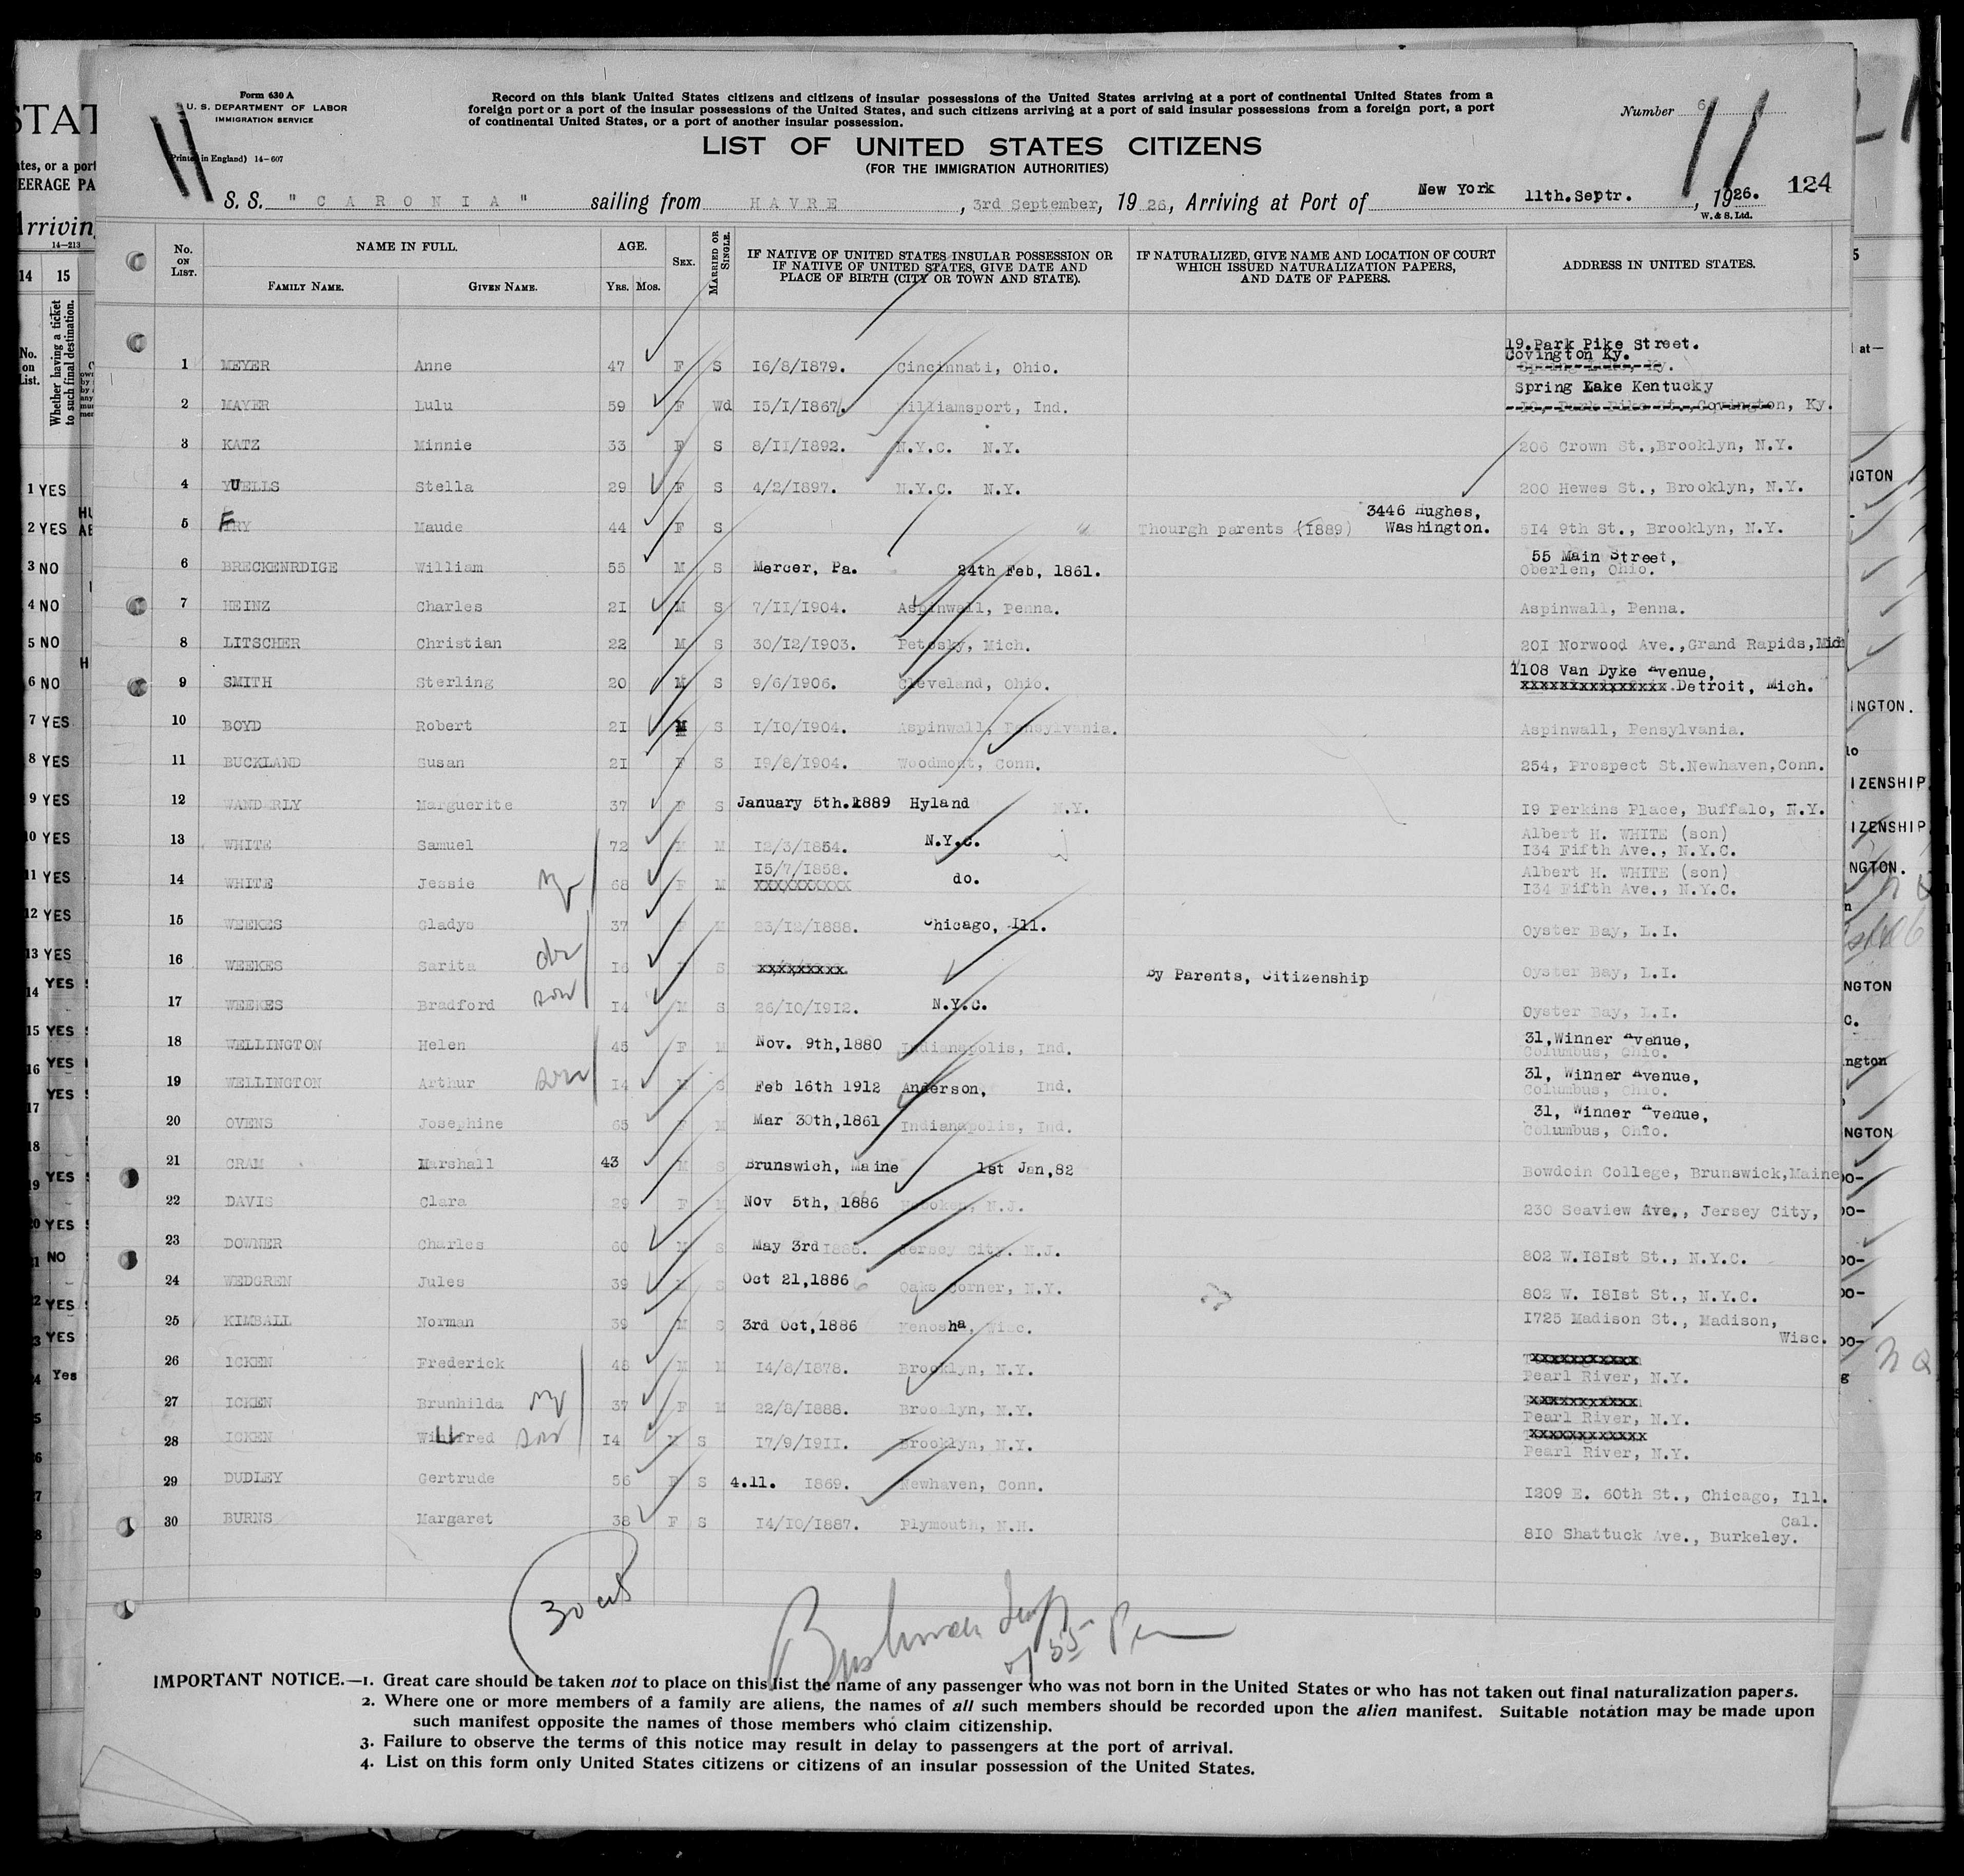 Form 630 A
U. S. DEPARTMENT OF LABOR
IMMIGRATION SERVICE
(Printed in England) 14-607
Record on this blank United States citizens and citizens of insular possessions of the United States arriving at a port of continental United States from a
foreign port or a port of the insular possessions of the United States, and such citizens arriving at a port of said insular possessions from a foreign port, a port
of continental United States, or a port of another insular possession.
Number 6
11
11
LIST OF UNITED STATES CITIZENS
(FOR THE IMMIGRATION AUTHORITIES)
124
S. S. "CARONIA" sailing from HAVRE, 3rd September, 1926, Arriving at Port of New York 11th.Septr., 1926.
W. & S. Ltd.
No. ON LIST. NAME IN FULL. AGE. SEX. MARRIED OR SINGLE. IF NATIVE OF UNITED STATES INSULAR POSSESSION OR IF NATIVE OF UNITED STATES, GIVE DATE AND PLACE OF BIRTH (CITY OR TOWN AND STATE). IF NATURALIZED, GIVE NAME AND LOCATION OF COURT WHICH ISSUED NATURALIZATION PAPERS, AND DATE OF PAPERS. ADDRESS IN UNITED STATES.
FAMILY NAME. GIVEN NAME. YRS. MOS.
19.Park Pike Street.
Covington Ky.
1 MEYER Anne 47 F S 16/8/1879. Cincinnati, Ohio.
Spring Lake Kentucky
2 MAYER Lulu 59 F Wd 15/1/1867. Williamsport, Ind. 19, Park Pike St., Covington, Ky.
3 KATZ Minnie 33 F S 8/11/1892. N.Y.C. N.Y. 206 Crown St.,Brooklyn, N.Y.
4 YUELLS Stella 29 F S 4/2/1897. N.Y.C. N.Y. 200 Hewes St., Brooklyn, N.Y.
3446 Hughes,
5 FRY Maude 44 F S Thourgh parents (1889) Washington. 514 9th St., Brooklyn, N.Y.
55 Main Street,
6 BRECKENRDIGE William 55 M S Mercer, Pa. 24th Feb, 1861. Oberlen, Ohio.
7 HEINZ Charles 21 M S 7/11/1904. Aspinwall, Penna. Aspinwall, Penna.
8 LITSCHER Christian 22 M S 30/12/1903. Petosky, Mich. 201 Norwood Ave.,Grand Rapids,Mich
1108 Van Dyke Avenue,
9 SMITH Sterling 20 M S 9/6/1906. Cleveland, Ohio. Detroit, Mich.
10 BOYD Robert 21 M S 1/10/1904. Aspinwall, Pensylvania. Aspinwall, Pensylvania.
11 BUCKLAND Susan 21 F S 19/8/1904. Woodmont, Conn. 254, Prospect St.Newhaven,Conn.
12 WANDERLY Marguerite 37 F S January 5th.1889 Hyland N.Y. 19 Perkins Place, Buffalo, N.Y.
13 WHITE Samuel 72 M M 12/3/1854. N.Y.C. Albert H. WHITE (son)
134 Fifth Ave., N.Y.C.
15/7/1858.
14 WHITE Jessie 68 F M do. Albert H. WHITE (son)
134 Fifth Ave., N.Y.C.
15 WEEKES Gladys 37 F M 23/12/1888. Chicago, Ill. Oyster Bay, L.I.
16 WEEKES Sarita 16 F S By Parents, Citizenship Oyster Bay, L.I.
17 WEEKES Bradford son 14 M S 26/10/1912. N.Y.C. Oyster Bay, L.I.
31,Winner Avenue,
18 WELLINGTON Helen 45 F M Nov. 9th,1880 Indianapolis, Ind. Columbus, Ohio.
31, Winner Avenue,
19 WELLINGTON Arthur son 14 M S Feb 16th 1912 Anderson, Ind. Columbus, Ohio.
31, Winner Avenue,
20 OVENS Josephine 65 F M Mar 30th,1861 Indianapolis, Ind. Columbus, Ohio.
21 CRAM Marshall 43 M S Brunswich, Maine 1st Jan,82 Bowdoin College, Brunswick,Maine
22 DAVIS Clara 29 F M Nov 5th, 1886 Hoboken, N.J. 230 Seaview Ave., Jersey City,
23 DOWNER Charles 60 M S May 3rd 1866. Jersey City. N.J. 802 W.181st St., N.Y.C.
24 WEDGREN Jules 39 M S Oct 21,1886 Oaks Corner, N.Y. 802 W. 181st St., N.Y.C.
25 KIMBALL Norman 39 M S 3rd Oct,1886 Kenosha, Wisc. 1725 Madison St., Madison,
Wisc.
26 ICKEN Frederick 48 M M 14/8/1878. Brooklyn, N.Y. Pearl River, N.Y.
27 ICKEN Brunhilda 37 F M 22/8/1888. Brooklyn, N.Y. Pearl River, N.Y.
28 ICKEN Wilfred son 14 M S 17/9/1911. Brooklyn, N.Y. Pearl River, N.Y.
29 DUDLEY Gertrude 56 F S 4.11. 1869. Newhaven, Conn. 1209 E. 60th St., Chicago, Ill.
30 BURNS Margaret 38 F S 14/10/1887. Plymouth, N.H. Cal.
810 Shattuck Ave., Burkeley.
30
IMPORTANT NOTICE.—1. Great care should be taken not to place on this list the name of any passenger who was not born in the United States or who has not taken out final naturalization papers.
2. Where one or more members of a family are aliens, the names of all such members should be recorded upon the alien manifest. Suitable notation may be made upon
such manifest opposite the names of those members who claim citizenship.
3. Failure to observe the terms of this notice may result in delay to passengers at the port of arrival.
4. List on this form only United States citizens or citizens of an insular possession of the United States.